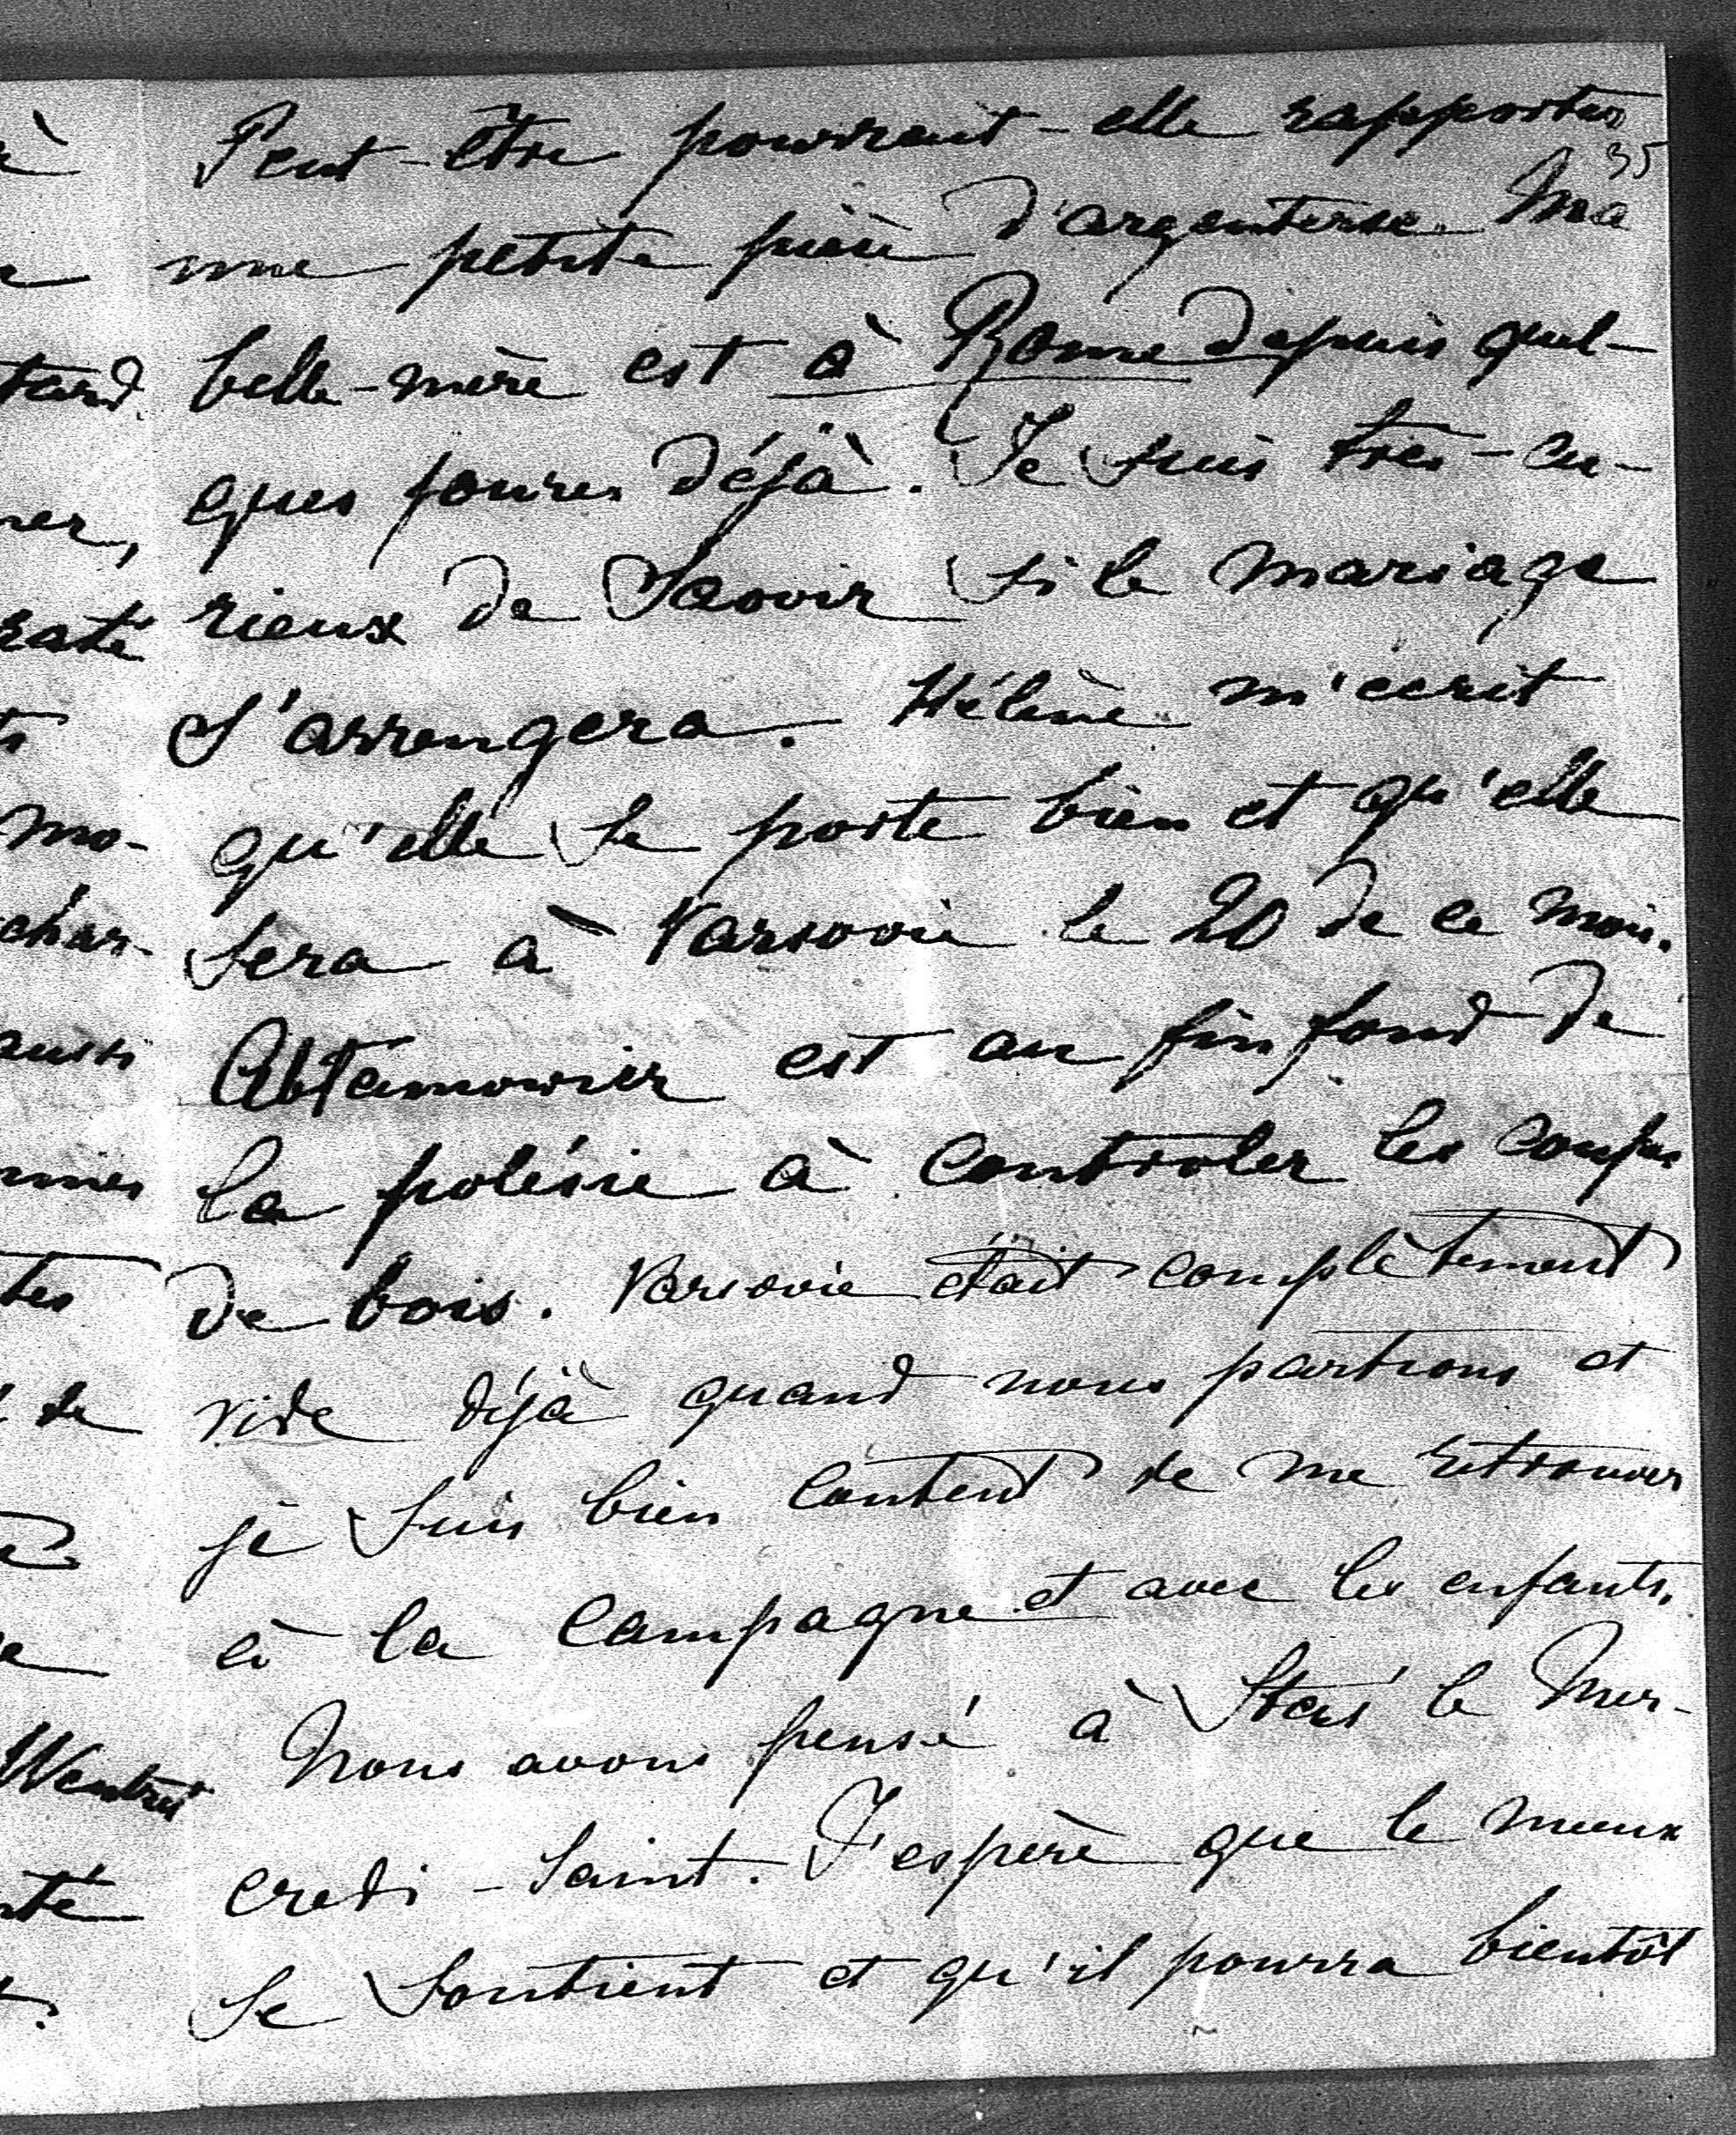 Peut-être pourrait-elle rapporter
35
une petite pièce d'argenterie. Ma
belle-mère est à Rome depuis quel-
ques jours déjà. Je suis très-cu-
rieux de savoir si le mariage
s'arrangera. Hélène m'écrit
qu'elle se porte bien et qu'elle
sera à Varsovie le 20 de ce mois.
est au fin fond de
la polésie à controler les coupes
de bois. Varsovie était complètement
vide déjà quand nous partions et
je suis bien content de me retrouver
à la campagne et avec les enfants.
Nous avons pensé à Staś le Mer-
credi-Saint. J'espère que le mieux
se soutient et qu'il pourra bientôt